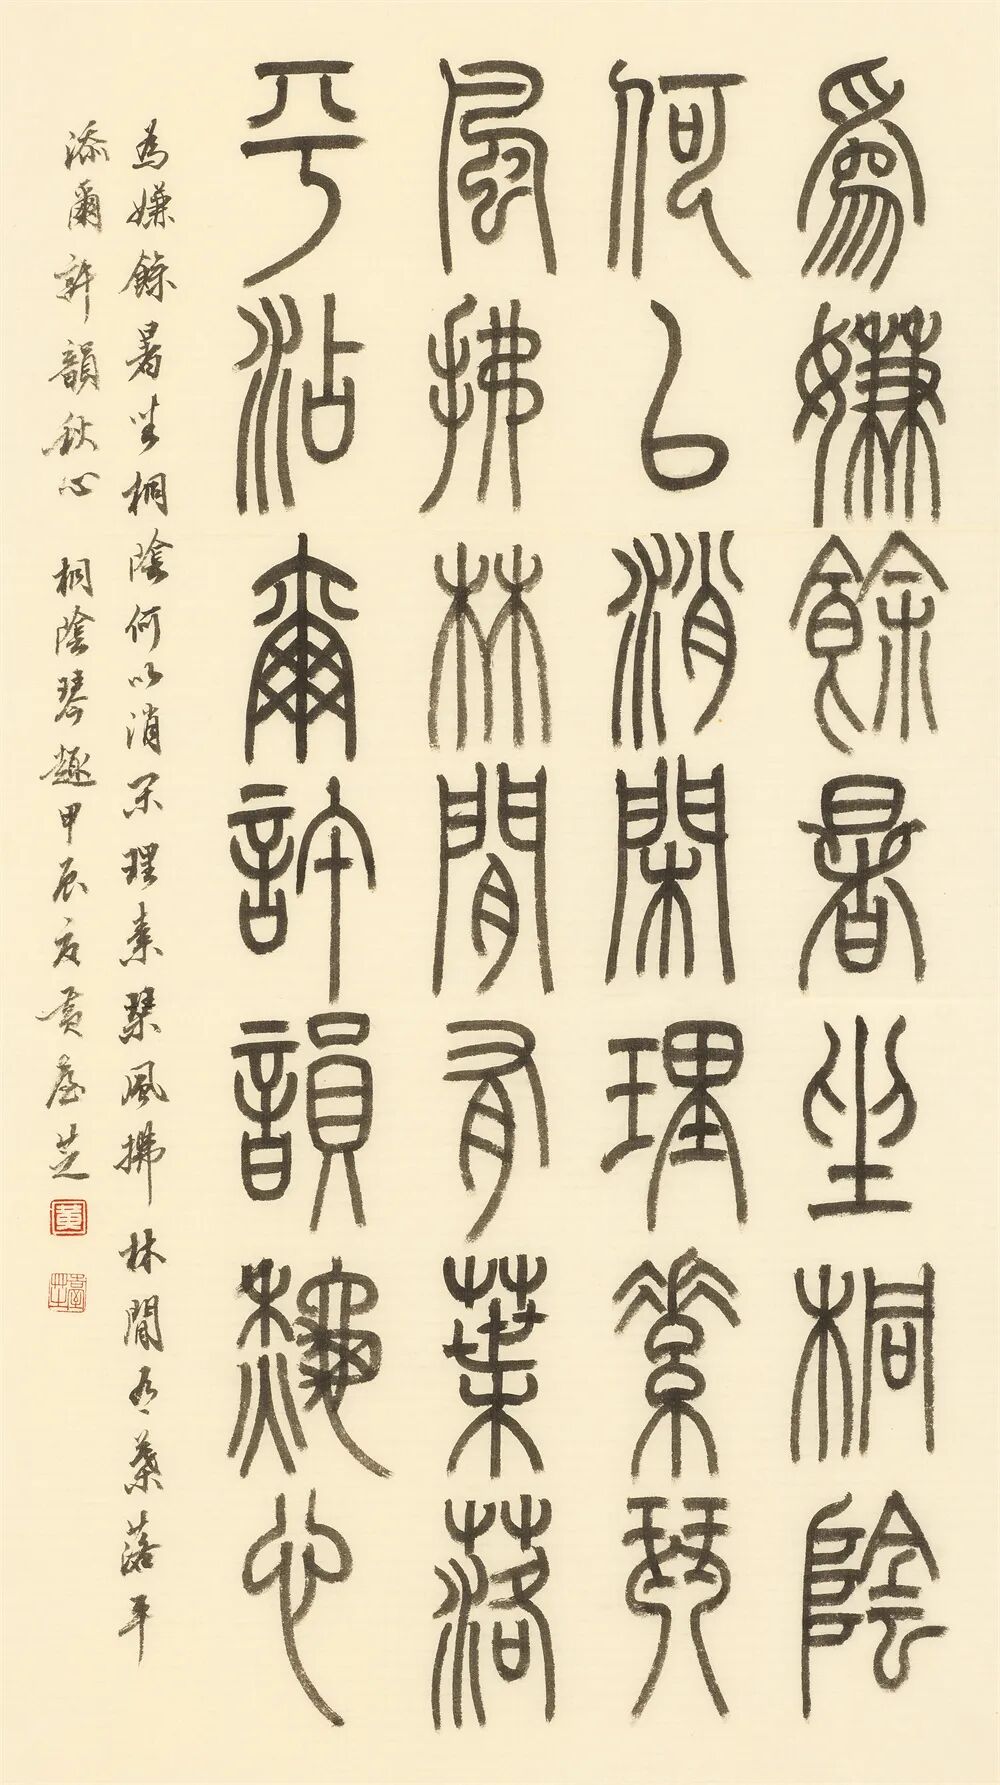 爲嫌餘暑坐桐陰
何㠯消閑理素琴
風拂林間有葉落
平沾爾許韻秋心
為嫌餘暑坐桐陰何以消閑理素琴風拂林間有葉落平
添爾許韻秋心 桐陰琴趣甲辰夏黃臺芝
黃